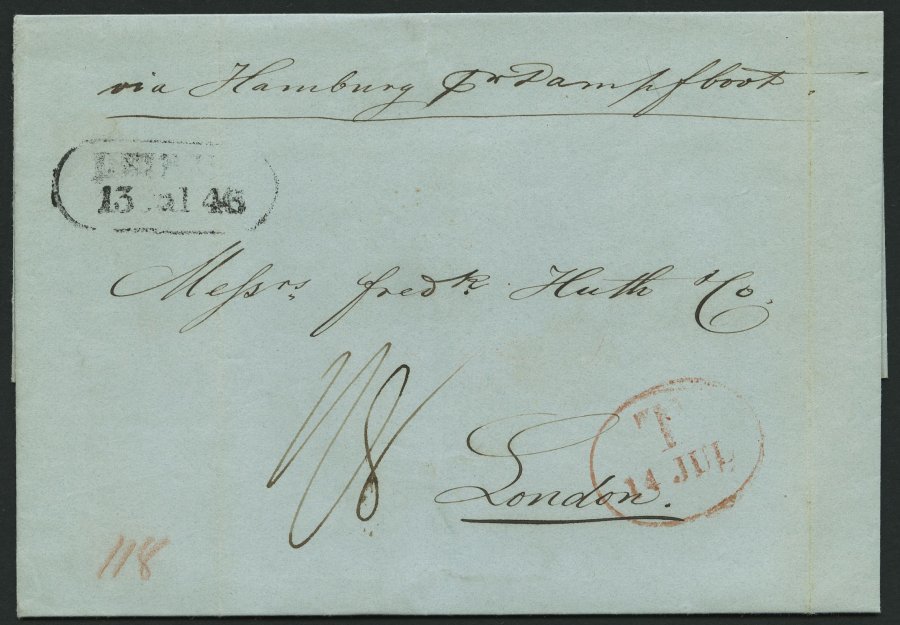 via Hamburg pr Dampfboot.
13 Jul 46
Messrs Fredk Huth & Co.
1/8
T
14 JUL
London.
118